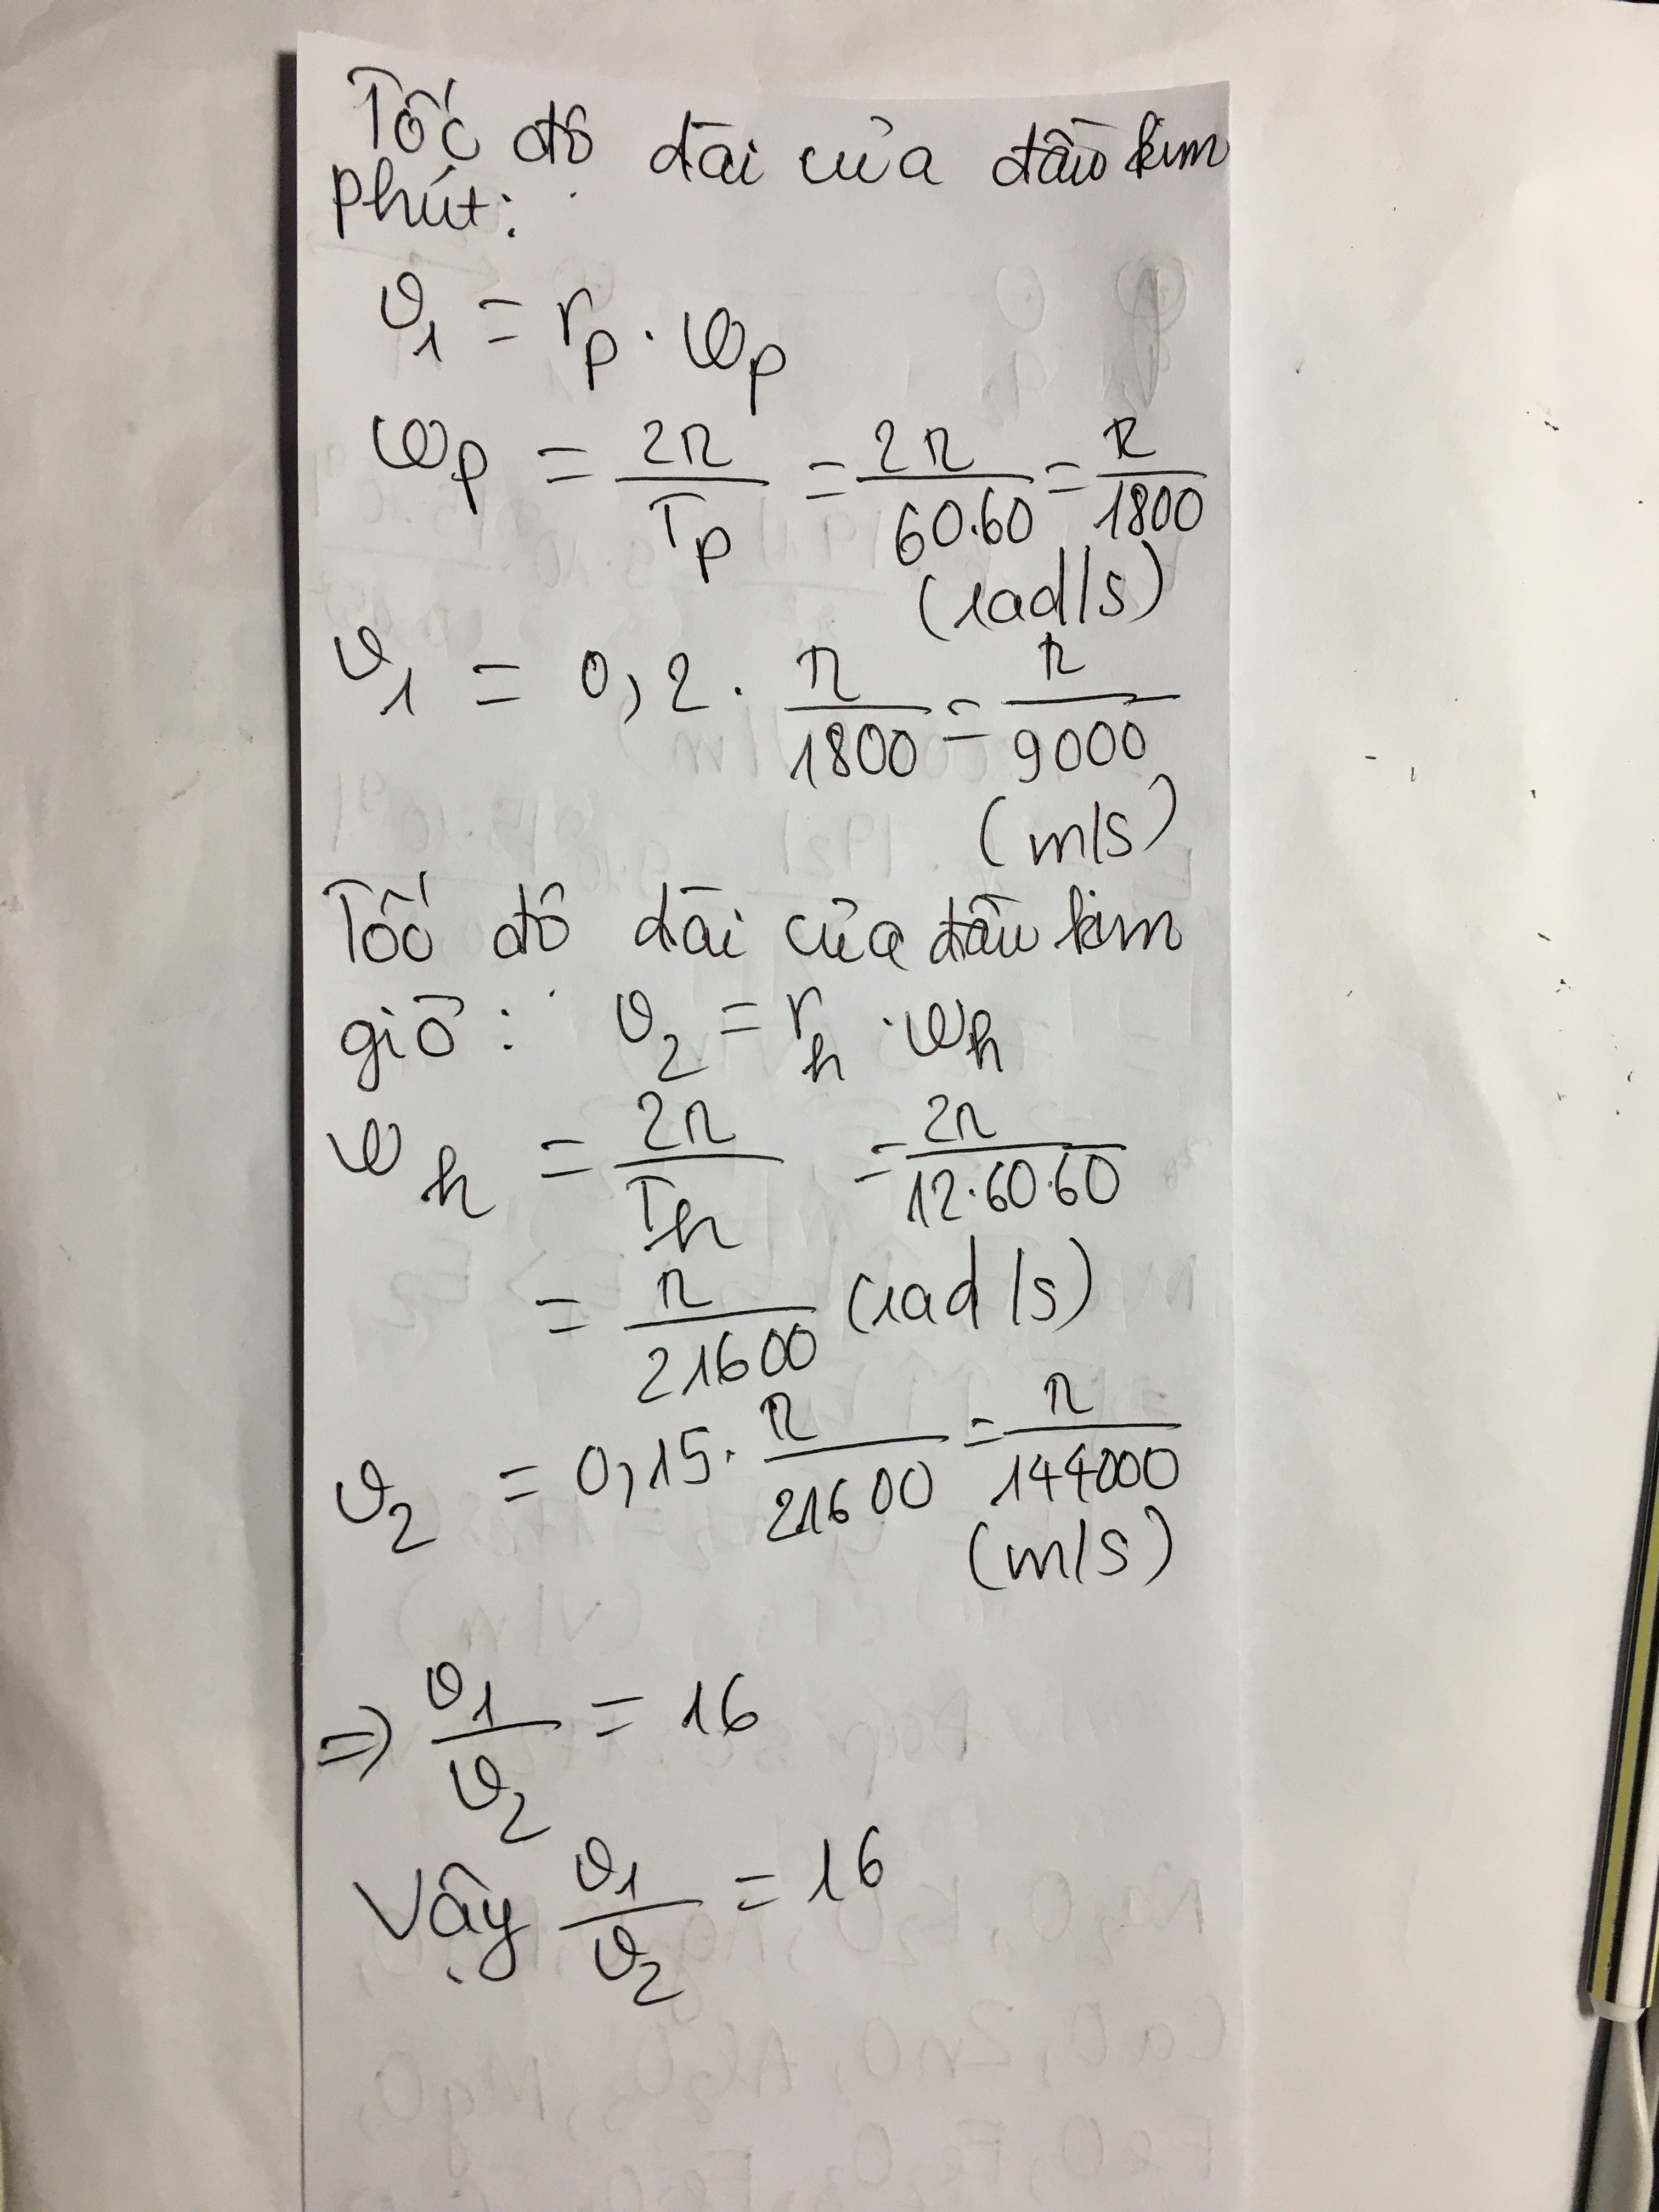 Tốc độ dài của đầu kim
phút:
v₁ = r_p . ω_p
ω_p = 2π/T_p = 2π/60.60 = π/1800
(rad/s)
v₁ = 0,2 . π/1800 = π/9000
(m/s)
Tốc độ dài của đầu kim
giờ: v₂ = r_h . ω_h
ω_h = 2π/T_h = 2π/12.60.60
= π/21600 (rad/s)
v₂ = 0,15 . π/21600 = π/144000
(m/s)
⇒ v₁/v₂ = 16
Vậy v₁/v₂ = 16